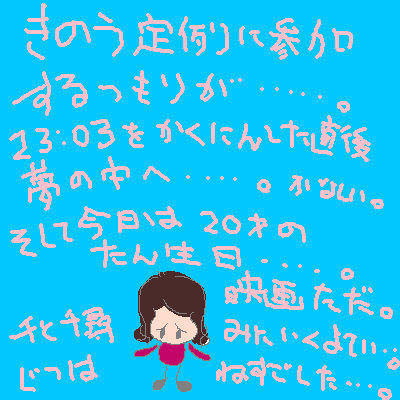 きのう定例に参加
するつもりが‥‥‥。
23:03をかくにんした直後
夢の中へ‥‥。かなしい。
そして今日は20才の
たん生日‥‥‥。
映画ただ。
千と千尋 みたいくよてい‥
じつは ねすごした‥‥。